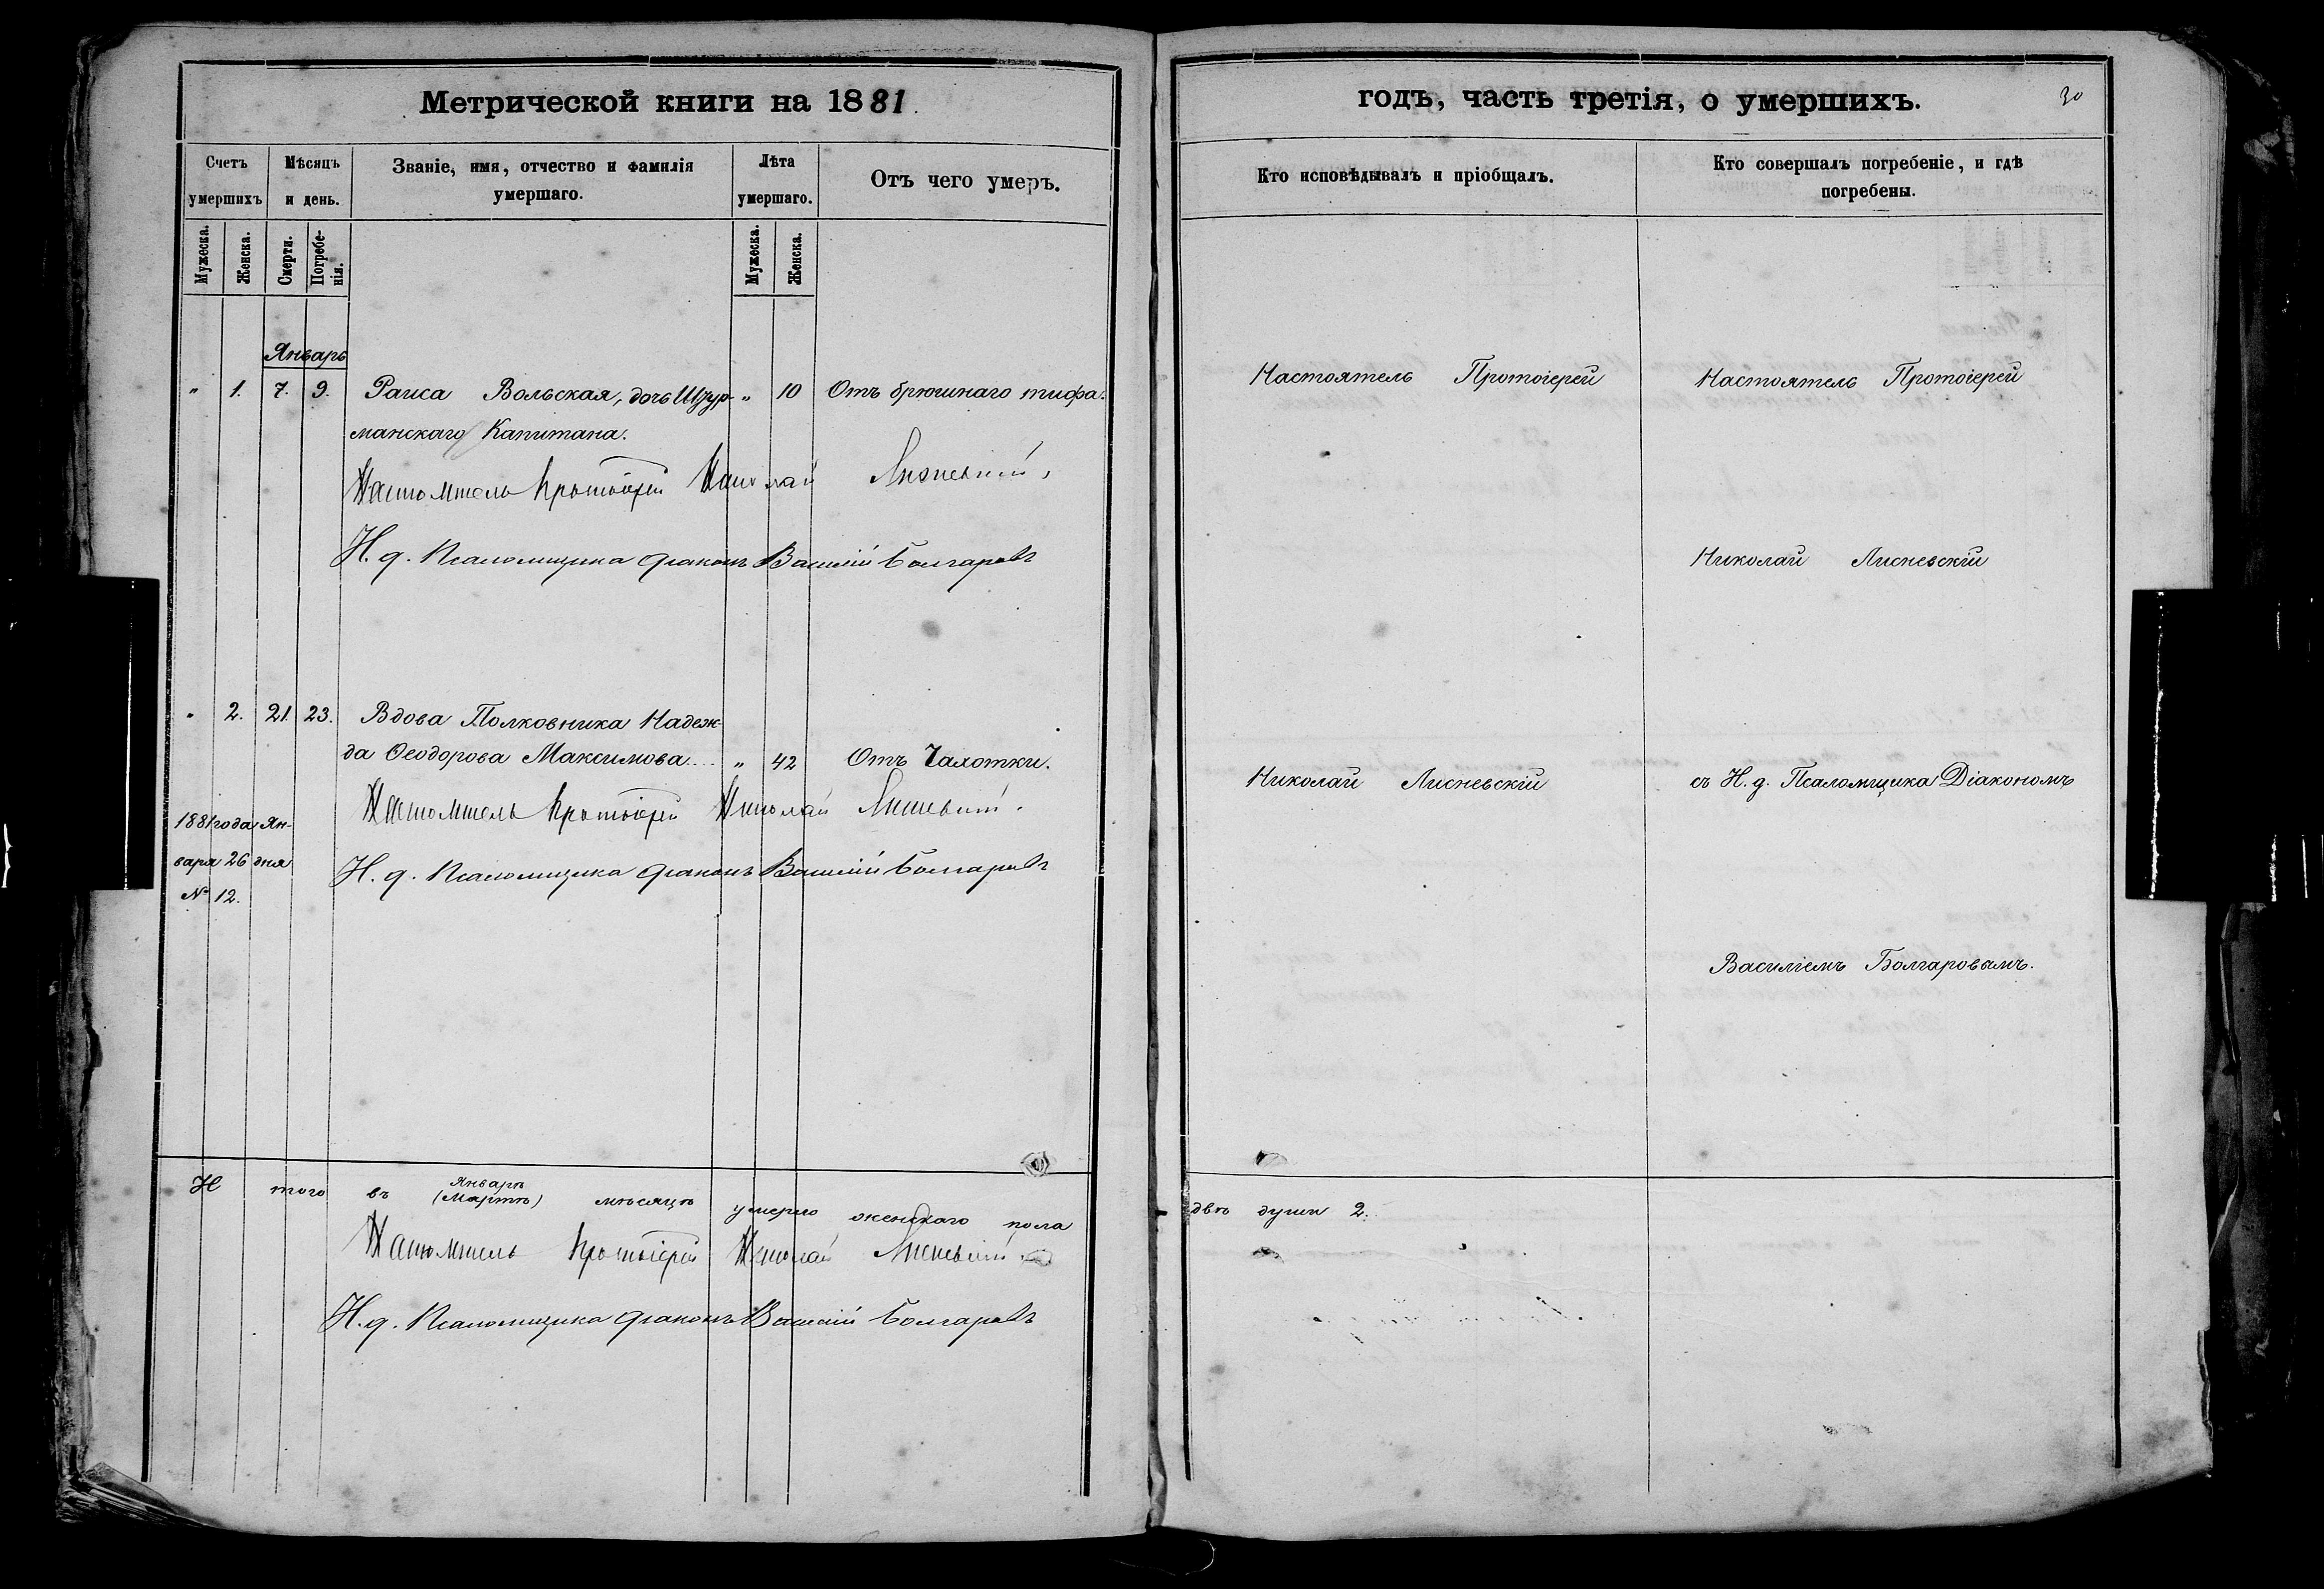 Метрической книги на 1881.
Счетъ умершихъ
Мѣсяцъ и день.
Званіе, имя, отчество и фамилія
умершаго.
Лѣта умершаго.
Отъ чего умеръ.
Мужеска.
Женска.
Смерти.
Погребенія.
Мужеска.
Женска.
Январь
" 1. 7. 9. Раиса Вольская, дочь Штур- " 10 Отъ брюшнаго тифа.
манскаго Капитана.
Настоятель Протоіерей Николай Лисневскій.
И. д. Псаломщика Діаконъ Василій Болгаровъ
" 2. 21. 23. Вдова Полковника Надеж-
да Ѳеодорова Максимова... " 42 Отъ Чахотки.
Настоятель Протоіерей Николай Лисневскій.
1881 года Ян-
варя 26 дня
№ 12.
И. д. Псаломщика Діаконъ Василій Болгаровъ
Итого въ Январѣ (Мартѣ) мѣсяцѣ умерло женскаго пола
Настоятель Протоіерей Николай Лисневскій
И. д. Псаломщика Діаконъ Василій Болгаровъ
годъ, часть третія, о умершихъ.
30
Кто исповѣдывалъ и пріобщалъ.
Кто совершалъ погребеніе, и гдѣ
погребены.
Настоятель Протоіерей
Настоятель Протоіерей
Николай Лисневскій
Николай Лисневскій
съ И. д. Псаломщика Діакономъ
Василіемъ Болгаровымъ.
двѣ души 2.